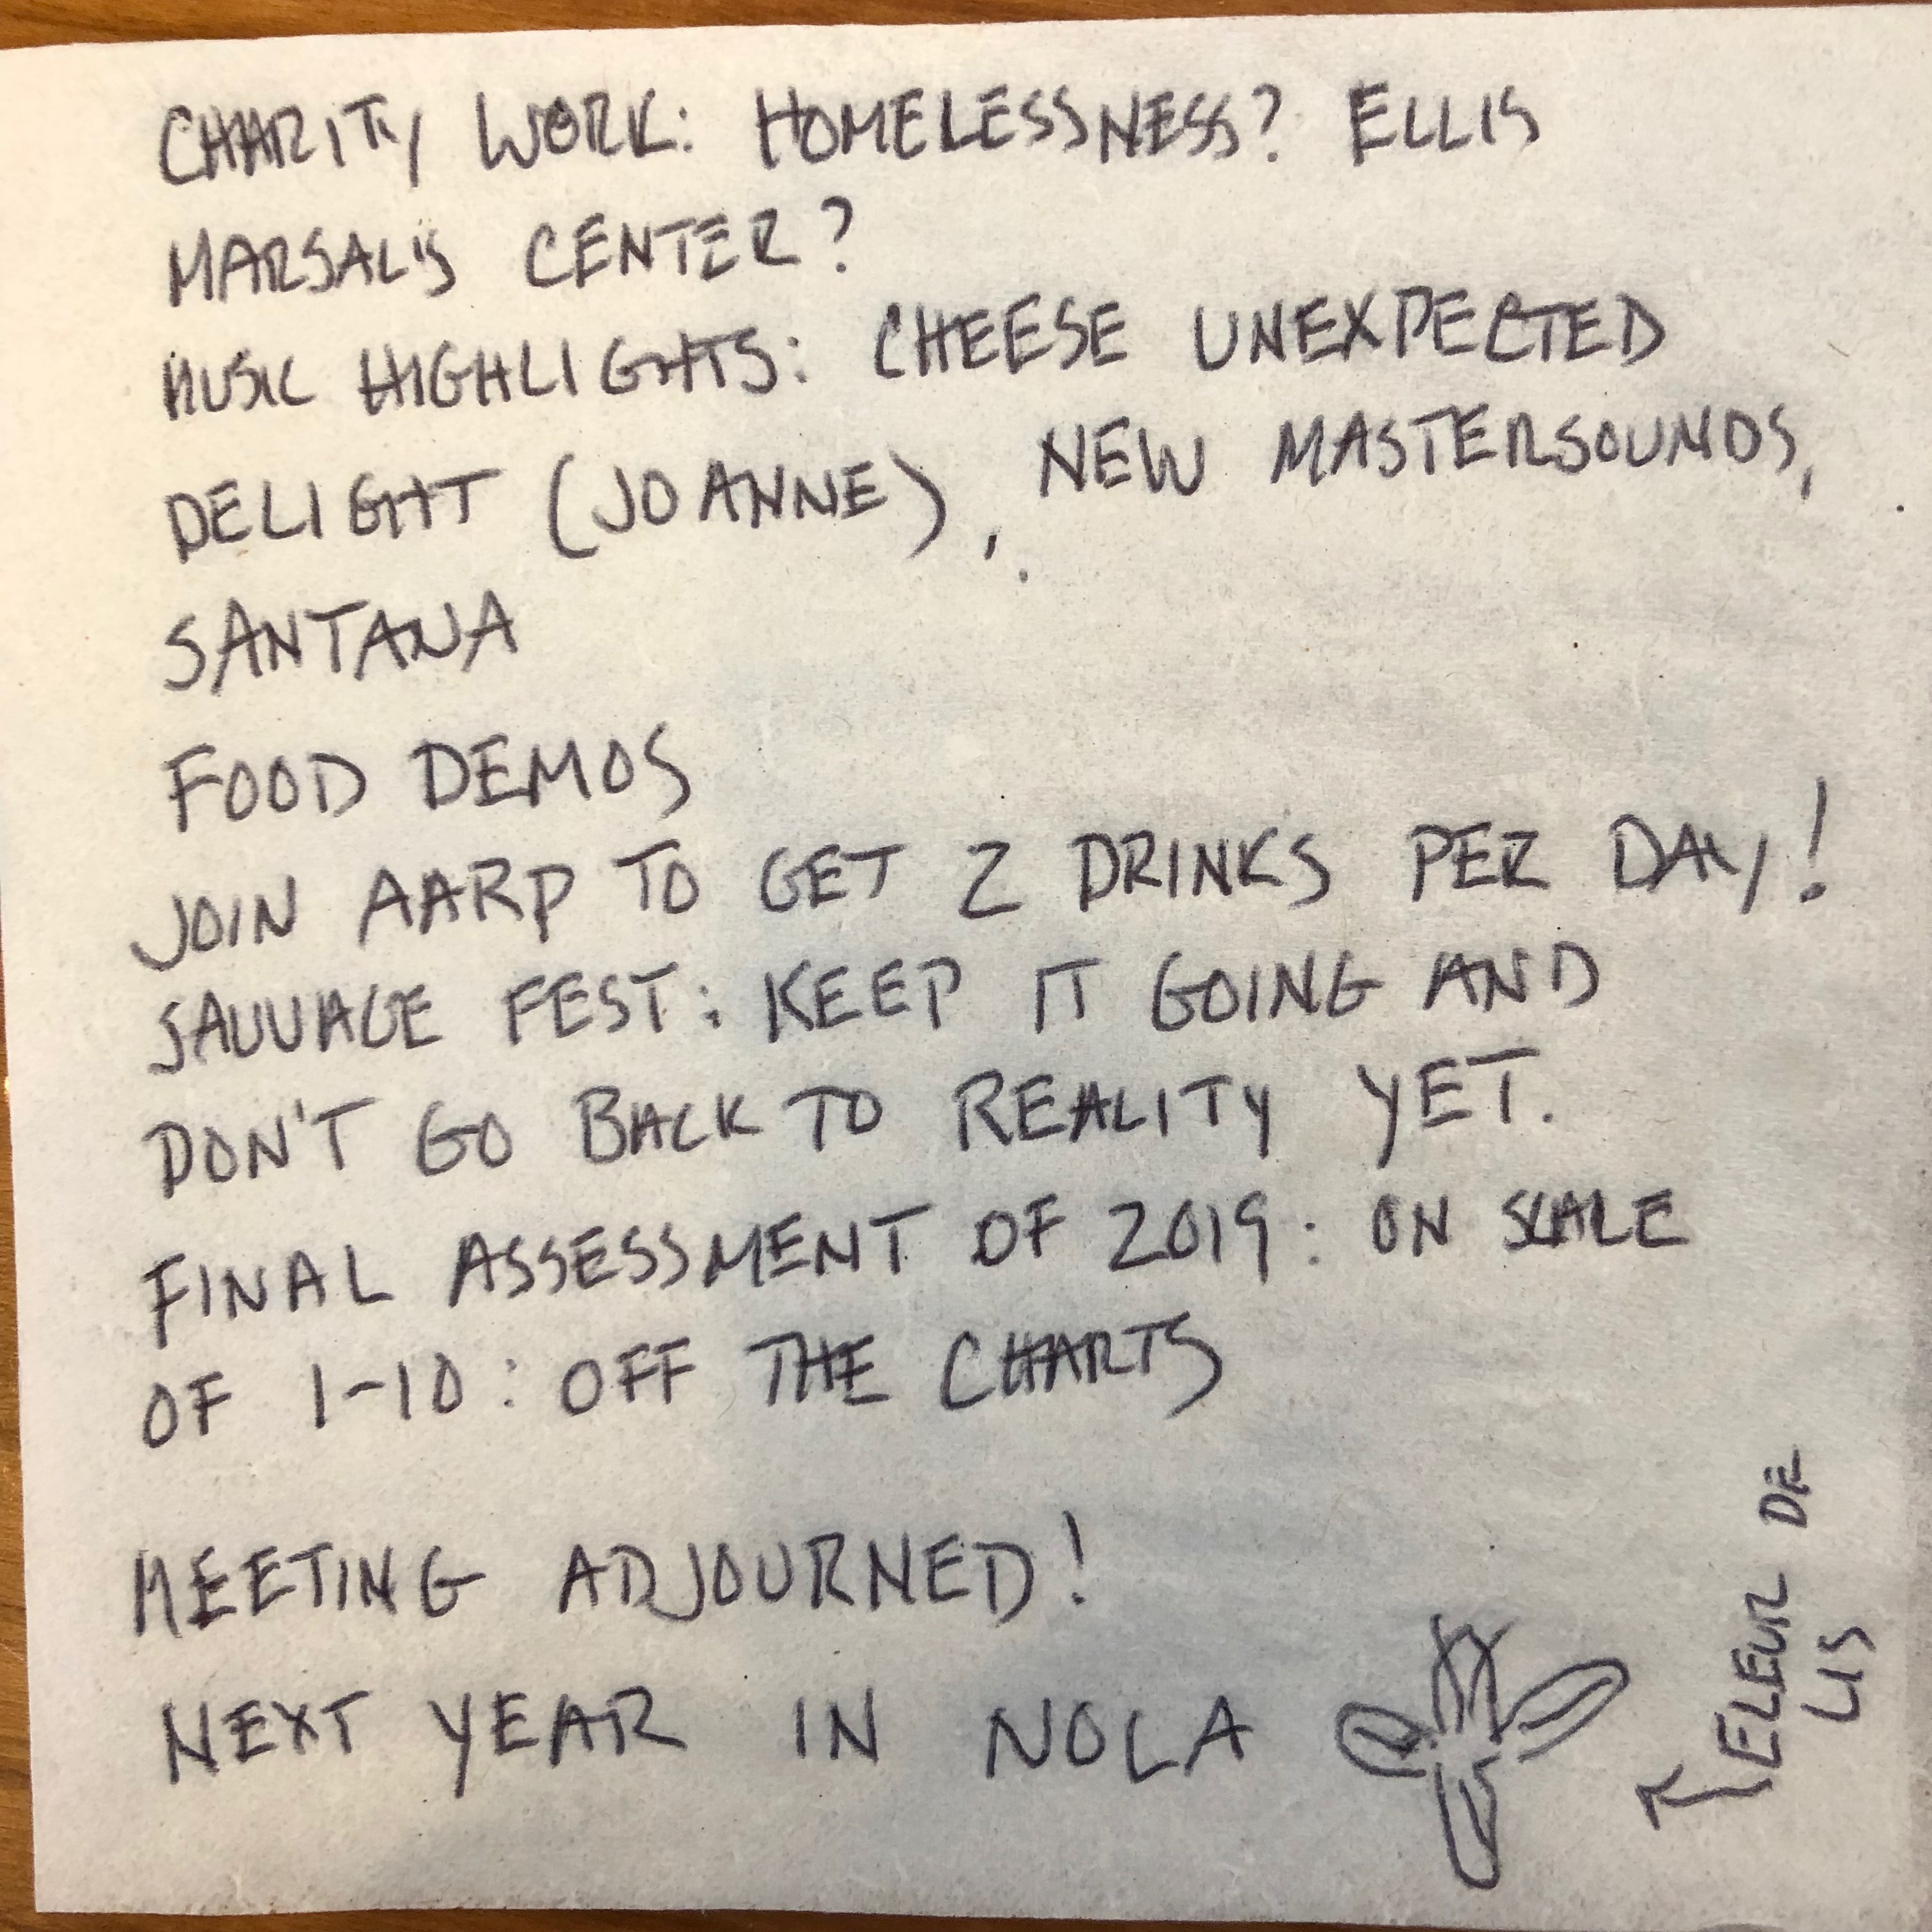 CHARITY WORK: HOMELESSNESS? ELLIS
MARSALIS CENTER?
MUSIC HIGHLIGHTS: CHEESE UNEXPECTED
DELIGHT (JOANNE), NEW MASTERSOUNDS,
SANTANA
FOOD DEMOS
JOIN AARP TO GET 2 DRINKS PER DAY!
SAUVAGE FEST: KEEP IT GOING AND
DON'T GO BACK TO REALITY YET.
FINAL ASSESSMENT OF 2019: ON SCALE
OF 1-10: OFF THE CHARTS
MEETING ADJOURNED!
NEXT YEAR IN NOLA
FLEUR DE
LIS